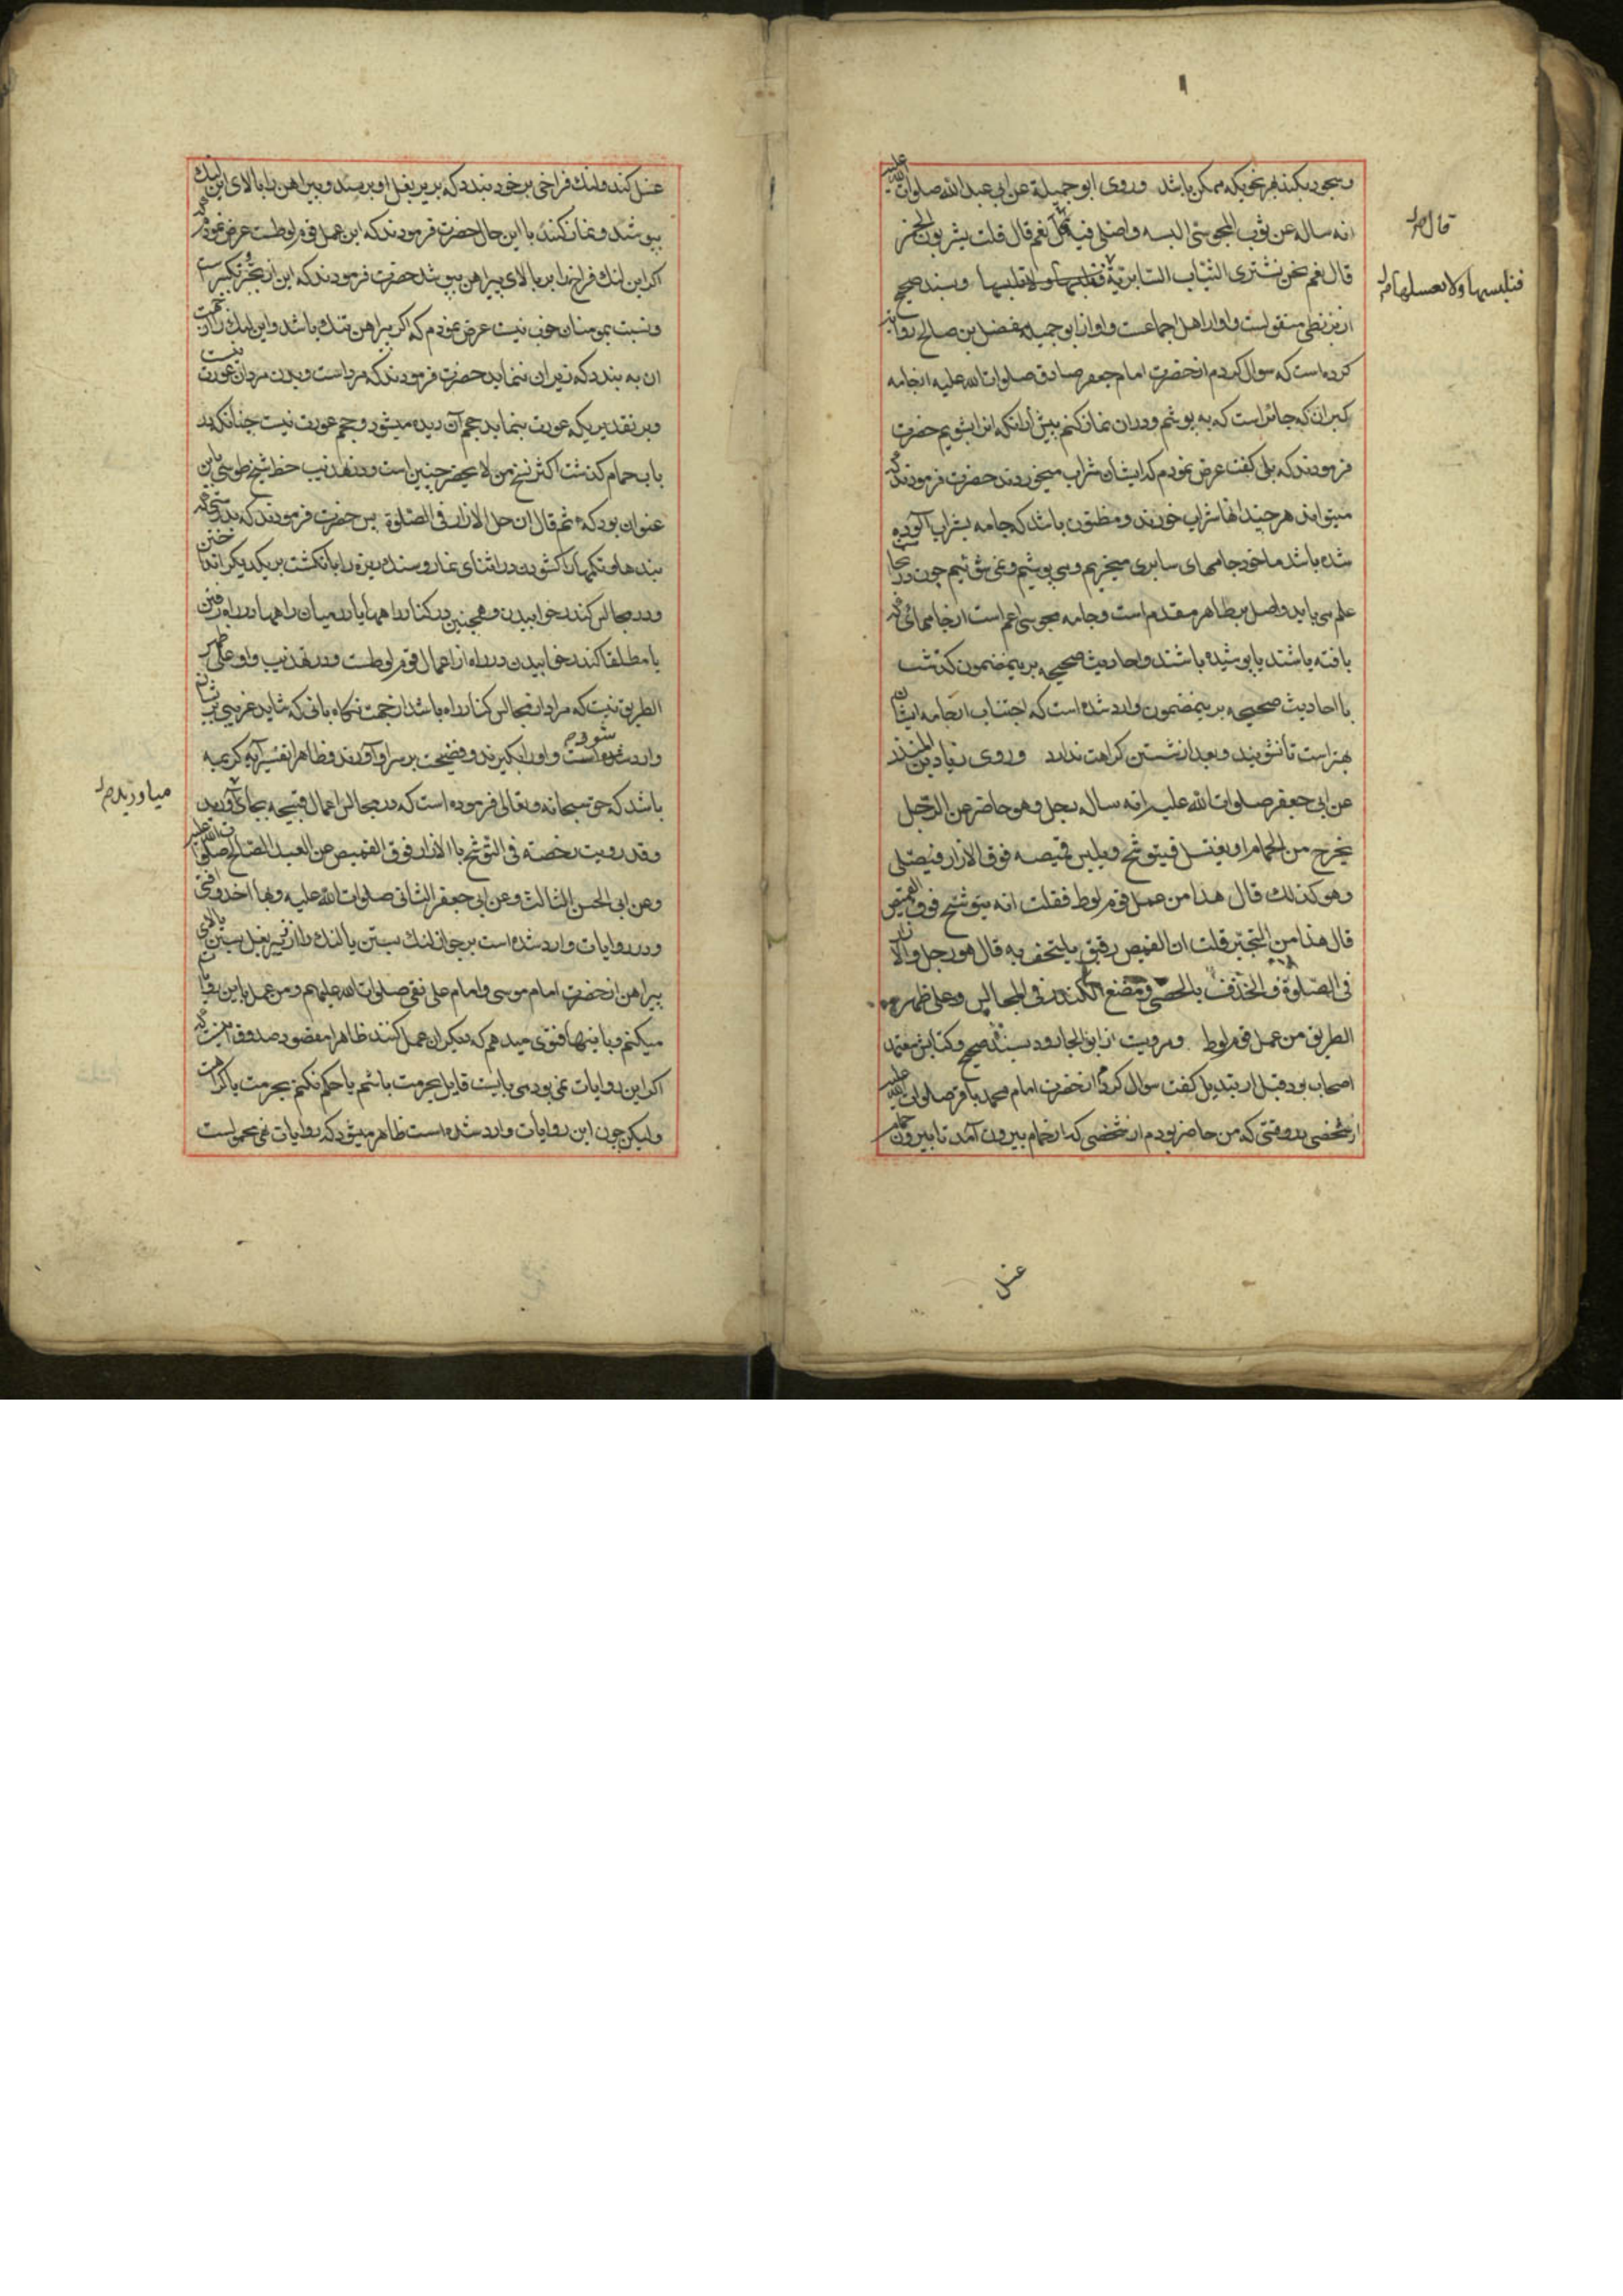 و سجود بکند بهر نحویکه ممکن باشد و روی ابو جمیلة عن ابی عبد الله صلوات الله علیه
انه ساله عن ثوب المجوسی البسه و اصلی فیه قال نعم قال قلت یشربون الخمر
قال نعم نحن نشتری الثیاب السابریة فنلبسها و لا نغسلها و بسند صحیح
از بزنطی منقولست و او از اهل اجماعست و او از ابو جمیله مفضل بن صالح روایت
کرده است که سوال کردم از حضرت امام جعفر صادق صلوات الله علیه از جامه
کبران که جائز است که به پوشم و در ان نماز کنم پیش از انکه انرا بشویم حضرت
فرمودند که بلی گفت عرض نمودم که ایشان شراب میخورند حضرت فرمودند که
میتواند هر چند انها شراب خورند و مظنون باشد که جامه بشراب آلوده
شده باشد ما خود جامهای سابری میخریم و می پوشیم و نمی شوئیم چون
علم می باید و اصل بر ظاهر مقدم است و جامه مجوسی اعم است از جامهائی که
بافته باشند یا پوشیده باشند و احادیث صحیحه برینمضمون کذشت
با احادیث صحیحه برینمضمون وارد شده است که اجتناب از جامه ایشان
بهتر است تا نشویند و بعد از شستن کراهت ندارد و روی زیاد بن المنذر
عن ابی جعفر صلوات الله علیه انه ساله رجل و هو حاضر عن الرجل
یخرج من الحمام او یغتسل فیتوشح و یلبس قمیصه فوق الازار فیصلی
و هو کذلك قال هذا من عمل قوم لوط فقلت انه یتوشح فوق القمیص
قال هذا من التجبر قلت ان القمیص رقیق یلتحف به قال هو و حل الازار
فی الصلوة و الخذف بالحصی و مضغ الکندر فی المجالس و علی ظهر
الطریق من عمل قوم لوط و مرویست از ابو الجارود بسند صحیح و کتابش معتمد
اصحاب بود قبل از تبدیل گفت سوال کرد از حضرت امام محمد باقر صلوات الله علیه
شخصی در وقتی که من حاضر بودم از شخصی که از حمام بیرون آمد تا بیرون حمام
قال
فنلبسها و لا نغسلها
غسل
غسل کند و لنك فراخی بر خود بندد که بر زیر بغل او برسد و پیراهن را بالای این لنك
بپوشد و نماز کند با این حال حضرت فرمودند که این عمل قوم لوطست عرض نمودم
اکر این لنك فراخ را بر بالای پیراهن بپوشد حضرت فرمودند که این از تجبر و تکبر است
و نسبت بمومنان خوب نیست عرض نمودم که اکر پیراهن تنك باشد و این لنك را از جهت
ان به بندد که زیر ان ننماید حضرت فرمودند که مرد است و بدن مردان عورت نیست
و بر تقدیری که عورت بنماید حجم آن دیده میشود و حجم عورت نیست چنانکه در
باب حمام کذشت اکثر نسخ من لا یحضر چنین است و در تهذیب خط شیخ طوسی باین
عنوان بود که ثم قال ان حل الازار فی الصلوة پس حضرت فرمودند که بدرستی که
بندها و تکمها را کشودن در اثنای نماز و سنك ریزه را بانکشت بر یکدیکر انداختن
و در مجالس کندر خوابیدن و همچنین در کنار راهها یا در میان راهها در راه رفتن
یا مطلقا کندر خاییدن در راه از اعمال قوم لوطست و در تهذیب واو علی ظهر
الطریق نیست که مراد از مجالس کنار راه باشد از جهت نکاه بانی که شاید غریبی
وارد شود و او را بکیرند و فضیحت بر سر او آورند و ظاهرا تفسیر آیه کریمه
باشد که حق سبحانه و تعالی فرموده است که در مجالس اعمال قبیحه بجای آورید
و قد رویت رخصة فی التوشح بالازار فوق القمیص عن العبد الصالح صلوات الله علیه
و عن ابی الحسن الثالث و عن ابی جعفر الثانی صلوات الله علیه و بها اخذ و افتی
و در روایات وارد شده است بر جواز لنك بستن یا لنك را از زیر بغل بستن بالای
پیراهن از حضرت امام موسی و امام علی نقی صلوات الله علیهم و من عمل باین روایات
میکنم و باینها فتوی میدهم که دیکران عمل کنند ظاهرا مقصود صدوق اینست که
اکر این روایات نمی بود می بایست قایل بحرمت باشم یا حکم نکنم بحرمت یا کراهت
و لیکن چون این روایات وارد شده است ظاهر میشود که روایات نهی محمولست
میاوریدم